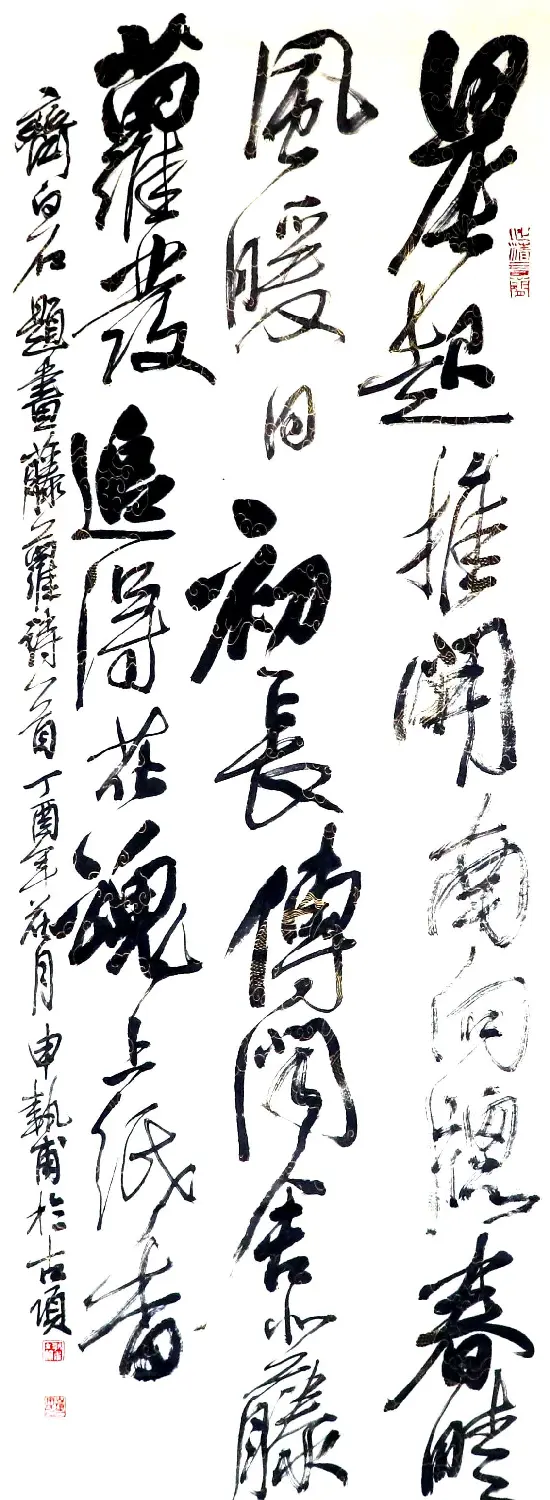 晨起推開南向牕春畦
風暖日初長傳聞舍北藤
蘿發追得花魂上紙香
齊白石題畫藤蘿詩一首丁酉年花月申執甫於古項